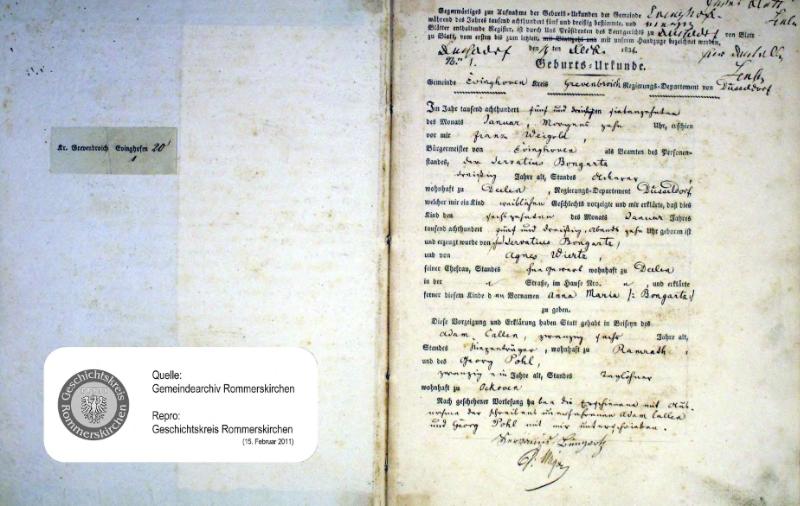 Kr. Grevenbroich Evinghofen 20
1
Geschichtskreis Rommerskirchen
Quelle:
Gemeindearchiv Rommerskirchen
Repro:
Geschichtskreis Rommerskirchen
(15. Februar 2011)
Gegenwärtiges zur Aufnahme der Geburts-Urkunden der Gemeinde
während des Jahres tausend achthundert fünf und dreißig bestimmte, und
Blätter enthaltende Register, ist durch Uns Präsidenten des Landgerichts zu Düsseldorf von Blatt
zu Blatt, vom ersten bis zum letzten, mit unserm Handzuge bezeichnet worden.
Düsseldorf den
No. 1.
Geburts-Urkunde.
Gemeinde Evinghoven Kreis Grevenbroich Regierungs-Departement von Düsseldorf
Im Jahr tausend achthundert fünf und dreissig den siebenzehnten
des Monats Januar, Morgens zehn Uhr, erschien
vor mir Franz Weigold
Bürgermeister von Evinghoven als Beamten des Personen-
standes, der Servatius Bongartz
dreißig Jahre alt, Standes Ackerer
wohnhaft zu Deelen, Regierungs-Departement Düsseldorf
welcher mir ein Kind weiblichen Geschlechts vorzeigte und mir erklärte, daß dies
Kind den sechszehnten des Monats Januar Jahres
tausend achthundert fünf und dreissig, Abends zehn Uhr geboren ist
und erzeugt wurde von Servatius Bongartz
und von Agnes Wiertz
seiner Ehefrau, Standes wohnhaft zu Deelen
in der Straße, im Hause Nro. und erklärte
ferner diesem Kinde den Vornamen Anna Maria /: Bongartz :/
zu geben.
Diese Vorzeigung und Erklärung haben Statt gehabt in Beiseyn des
Adam Callen, zwanzig sechs Jahre alt,
Standes wohnhaft zu Ramrath
und des Georg Pohl
zwanzig ein Jahre alt, Standes Taglöhner
wohnhaft zu Ockoven
Nach geschehener Vorlesung haben die Erschienene mit Aus-
nahme des Schreibens unerfahrenen Adam Callen
und Georg Pohl mit mir unterschrieben.